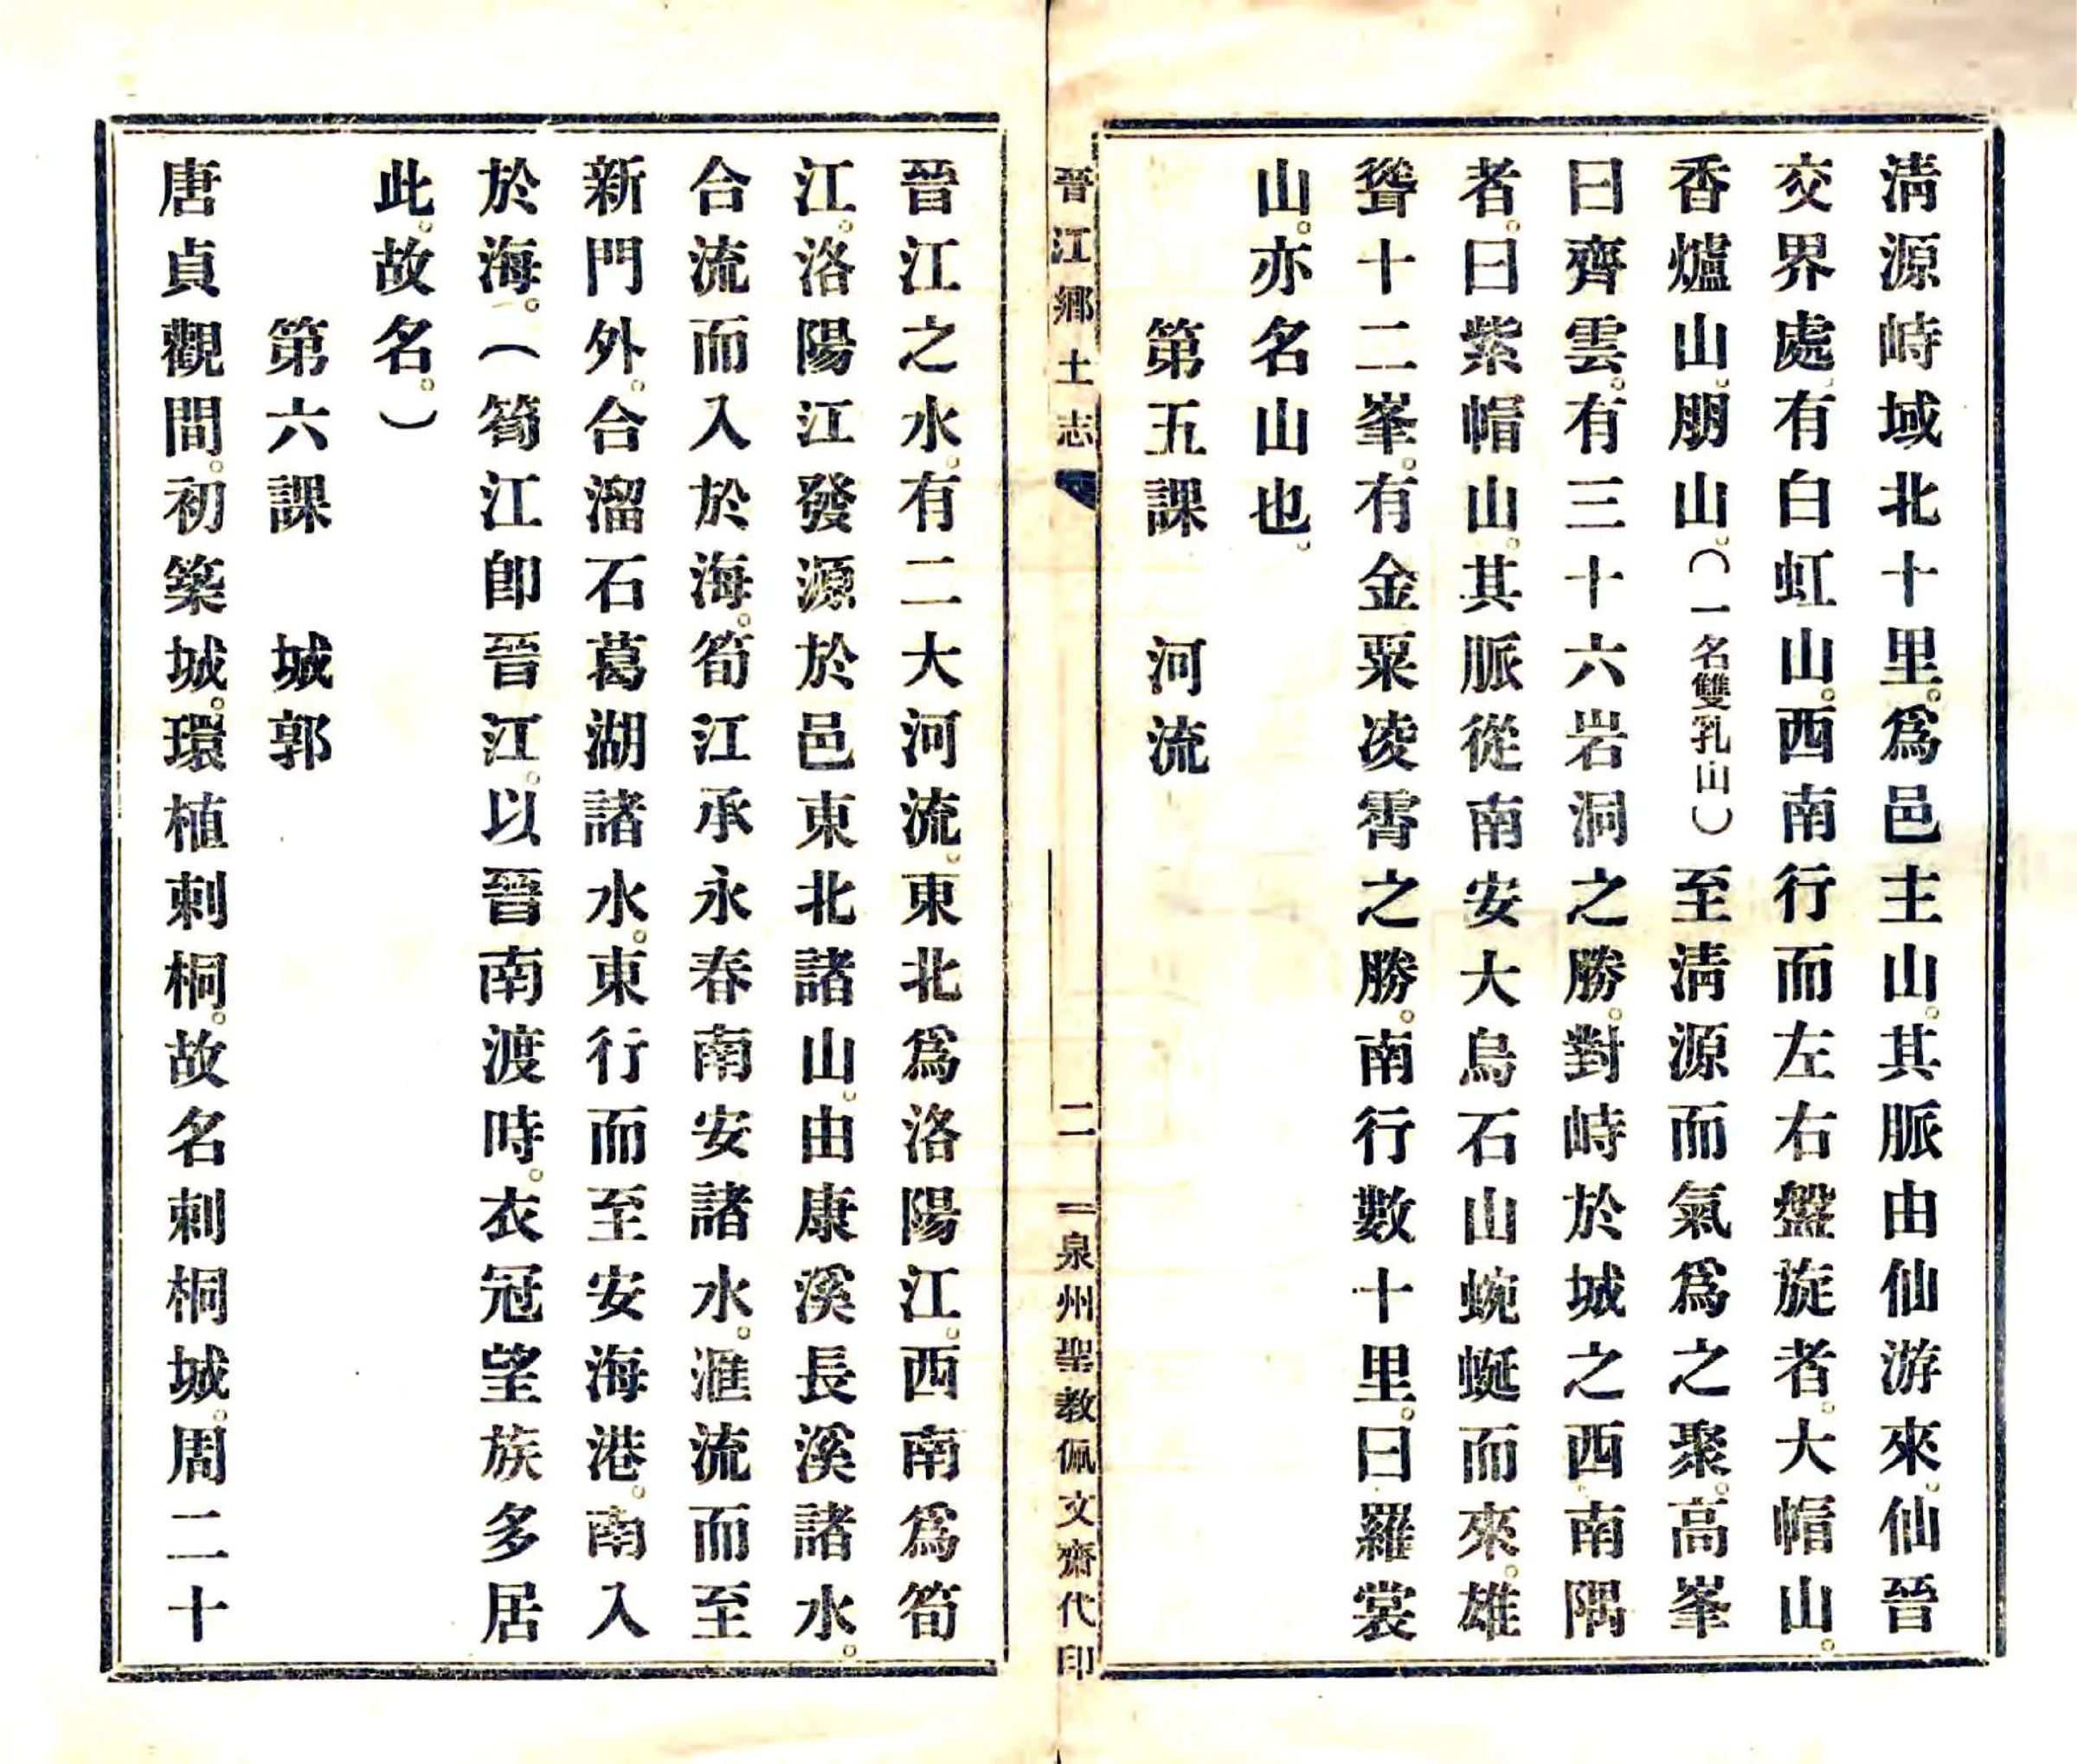 淸源峙域北十里。爲邑主山。其脈由仙游來。仙晉
交界處。有白虹山。西南行而左右盤旋者。大帽山。
香爐山。朋山。（一名雙乳山）至淸源而氣爲之聚。高峯
曰齊雲。有三十六岩洞之勝。對峙於城之西南隅
者。曰紫帽山。其脈從南安大烏石山蜿蜒而來。雄
聳十二峯。有金粟凌霄之勝。南行數十里。曰羅裳
山。亦名山也。
第五課　河流
晉江鄉土志
二
泉州聖教佩文齋代印
晉江之水。有二大河流。東北爲洛陽江。西南爲筍
江。洛陽江發源於邑東北諸山。由康溪長溪諸水。
合流而入於海。筍江承永春南安諸水。滙流而至
新門外。合溜石葛湖諸水。東行而至安海港。南入
於海。（筍江卽晉江。以晉南渡時。衣冠望族多居
此。故名。）
第六課　城郭
唐貞觀間。初築城。環植刺桐。故名刺桐城。周二十